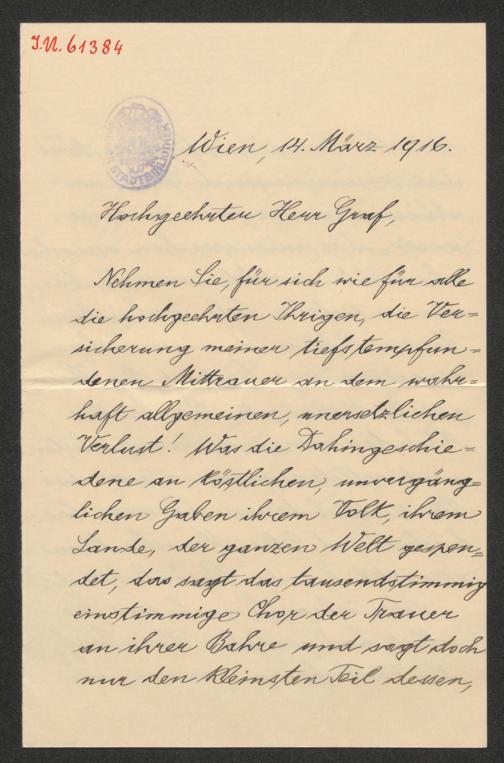 J.N. 61384
STADTBIBLIOTHEK
Wien, 14. März 1916.
Hochgeehrten Herr Graf,
Nehmen Sie, für sich wie für alle
die hochgeehrten Ihrigen, die Ver=
sicherung meiner tiefstempfun=
denen Mittrauer an dem wahr=
haft allgemeinen, unersetzlichen
Verlust! Was die Dahingeschie=
dene an köstlichen, unvergäng=
lichen Gaben ihrem Volk, ihrem
Lande, der ganzen Welt gespen=
det, das sagt das tausendstimmig
einstimmige Chor der Trauer
an ihrer Bahre und sagt doch
nur den kleinsten Teil dessen,